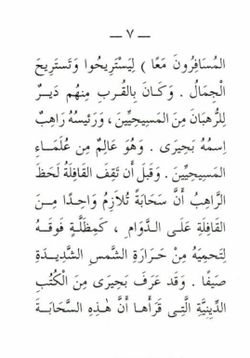 — ٧ —
المُسَافِرُونَ مَعًا ) لِيَسْتَرِيحُوا وَتَسْتَرِيحَ
الْجِمَالُ . وَكَانَ بِالقُربِ مِنهُم دَيرٌ
لِلرُّهبَانِ مِنَ المَسِيحِيِّينَ ، وَرَئِيسُهُ رَاهِبٌ
اِسمُهُ بَحِيرَى . وَهُوَ عَالِمٌ مِن عُلَمَاءِ
المَسِيحِيِّينَ . وَقَبلَ أَن تَقِفَ القَافِلَةُ لَحَظَ
الرَّاهِبُ أَنَّ سَحَابَةً تُلاَزِمُ وَاحِدًا مِـنَ
القَافِلَةِ عَلَـى الدَّوَامِ ، كَمِظَلَّـةٍ فَوقَـهُ
لِتَحمِيَهُ مِنْ حَرَارَةِ الشَّمسِ الشَّدِيـدَةِ
صَيفًا . وَقَد عَرَفَ بَحِيرَى مِنَ الْكُتُبِ
الدِّينِيَّةِ الَّتِـى قَرَأَهَا أَنَّ هٰذِهِ السَّحَابَةَ